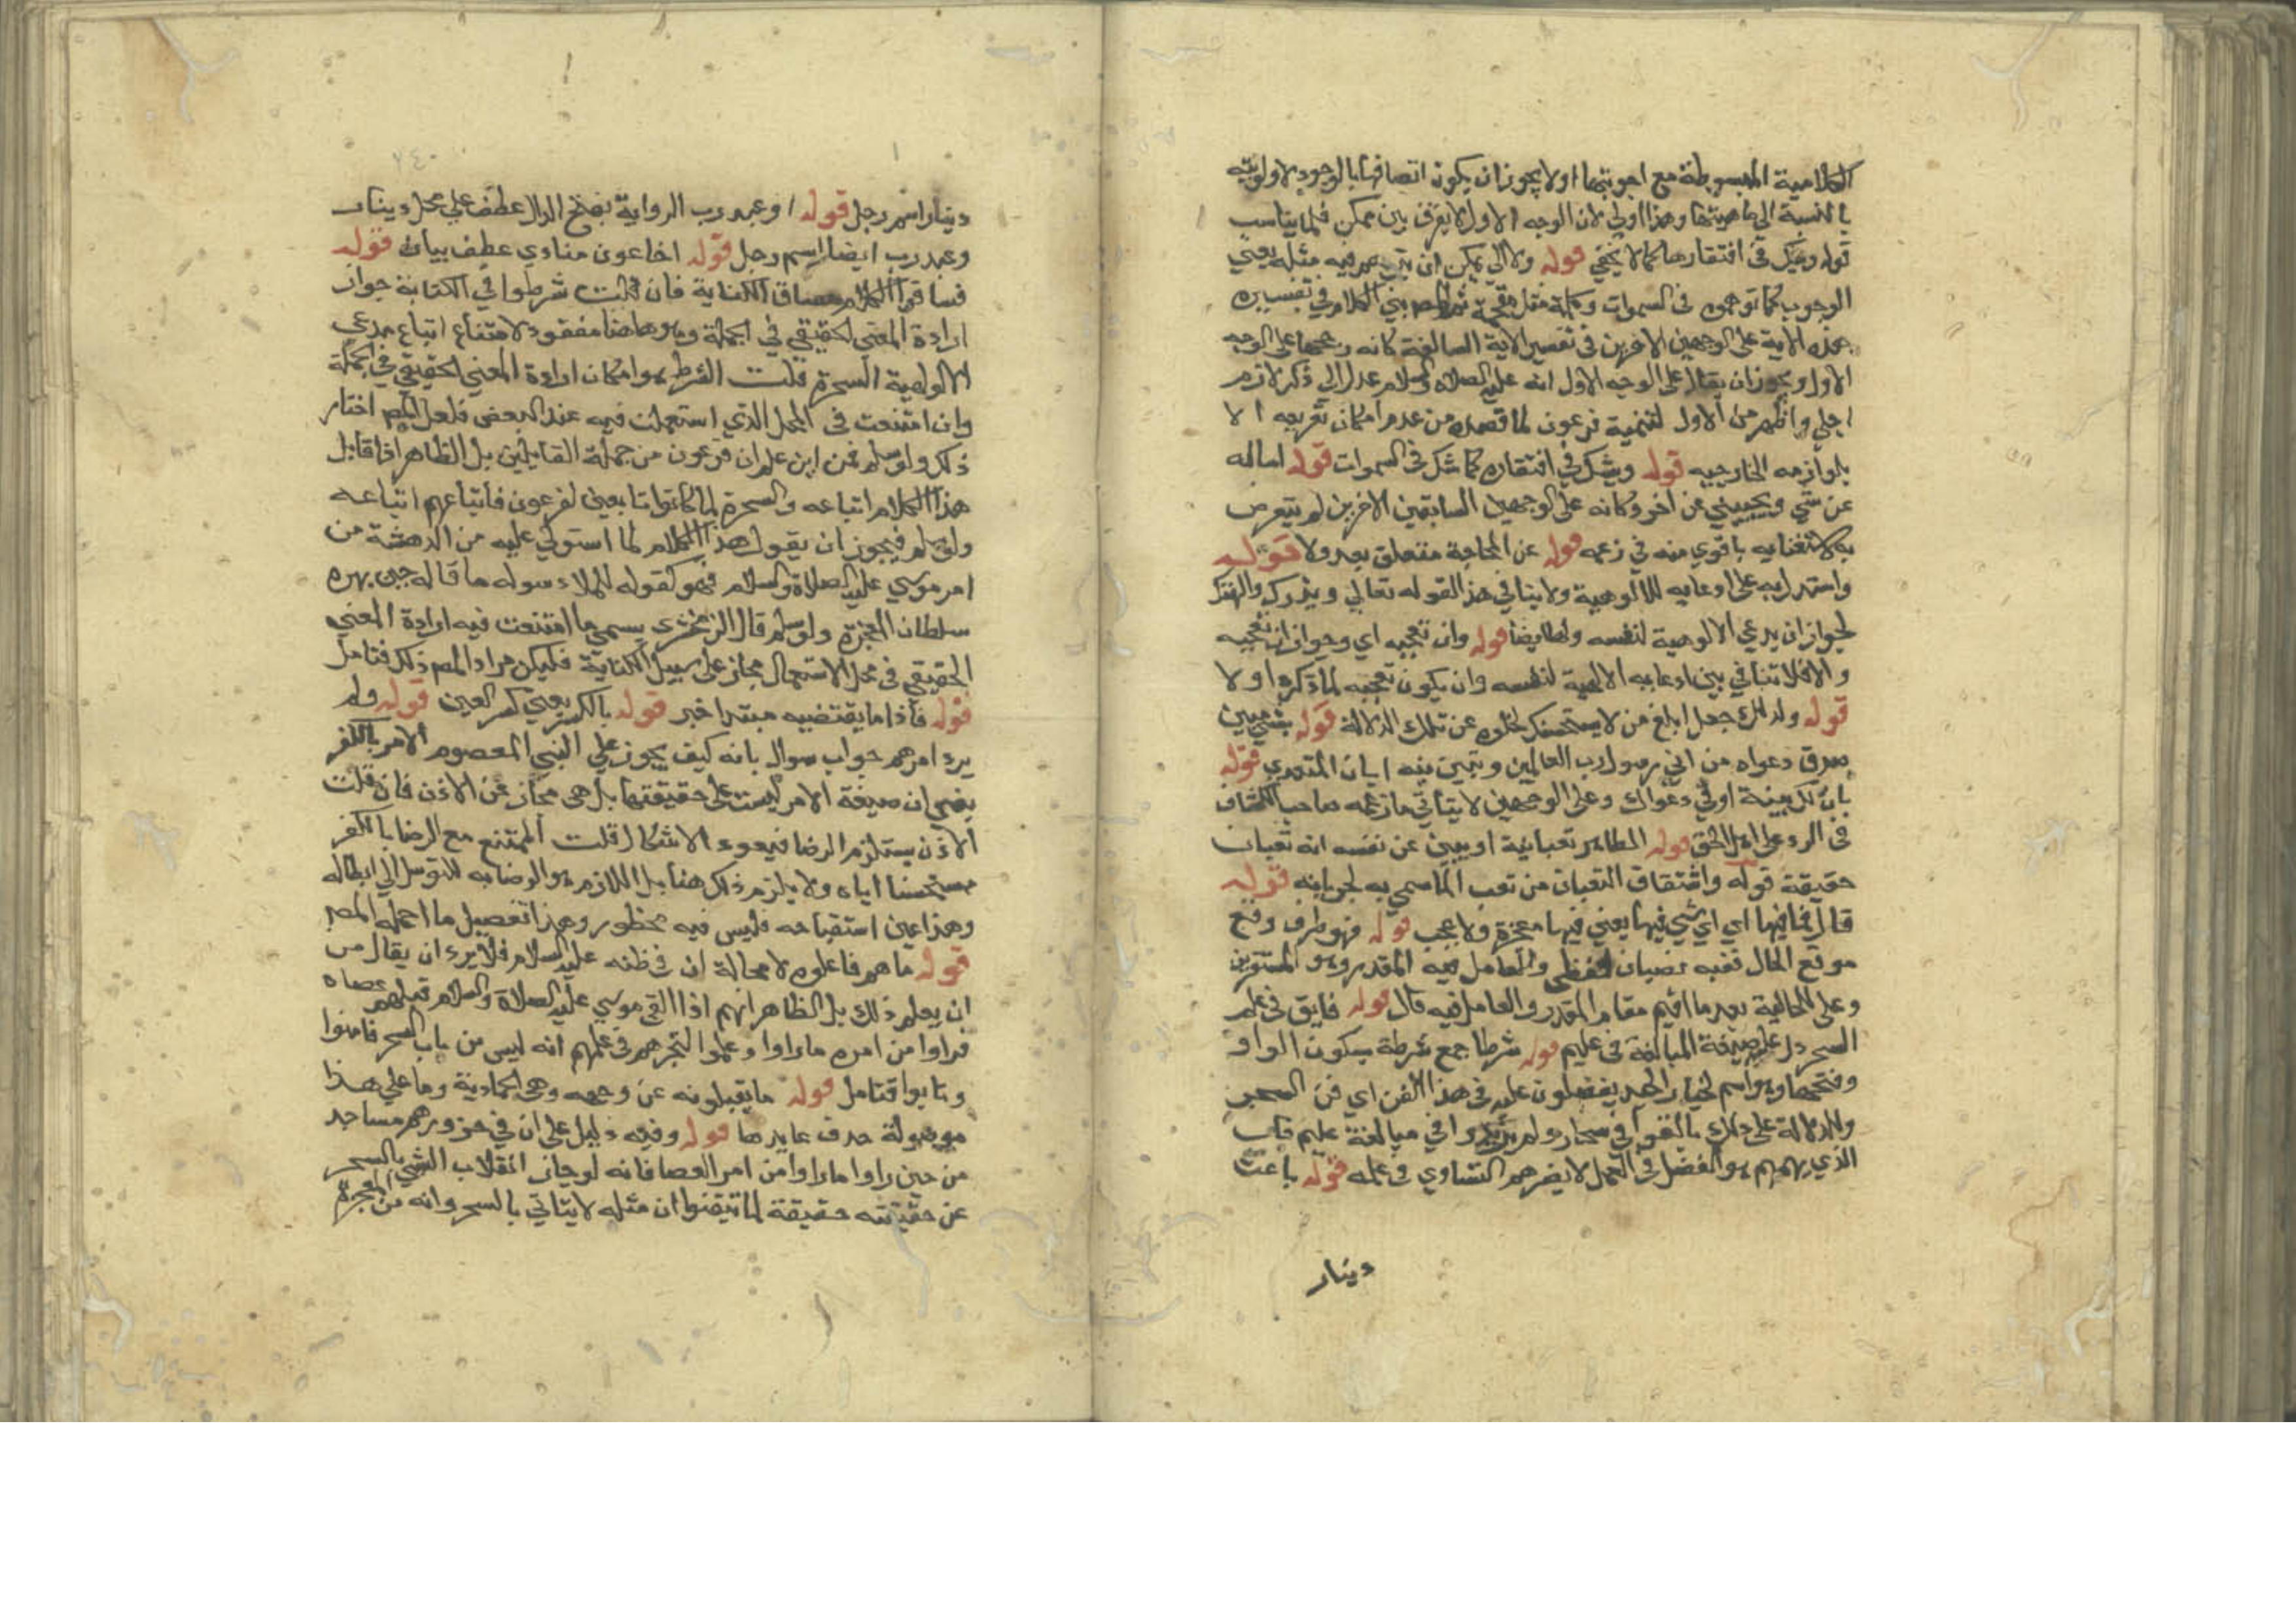 الكلامية المبسوطة مع اجوبتها اولا يجوز ان يكون اتصافها بالوجود لاولويته
بالنسبة الي ماهيتها وهذا اولي لان الوجه الاول لا يفرق بين ممكن فلما يناسب
قوله ويشك في افتقارها كما لا يخفي قوله ولا الي يمكن ان يتوهم فيه مثله يعني
الوجوب كما توهموه في السموات وكلمة مثل مقحمة ثم المص بني الكلام في تفسير
هذه الاية علي الوجهين الاخرين في تفسير الاية السالفة كانه رجحها علي الوجه
الاول ويجوز ان يقال علي الوجه الاول انه عليه الصلاة والسلام عدل الي ذكر لازم
اجلي واظهر من الاول لتنمية فرعون لما قصده من عدم امكان تعريجه الا
بلوازمه الخارجيه قوله ويشك في افتقاره كما شك في السموات قوله اساله
عن شي ويجيبني عن اخر وكانه علي الوجهين السابقين الاخرين لم يتعرض
به لاستغنايه باقوي منه في زعمه قوله عن المحاجة متعلق بعدولا قوله
واستدل به علي ادعايه للالوهية ولا ينافي هذا القوله تعالي ويذرك والهتك
لجواز ان يدعي الالوهية لنفسه ولها ايضا قوله وان تعجبه اي وجواز ان تعجبه
والا فلا تنافي بين ادعايه الالهية لنفسه وان يكون تعجبه لما ذكروا ولا
قوله ولذلك جعل ابلغ من لاسجننك لخلوه عن تلك الدلالة قوله بشي مبين
صدق دعواه من اني رسول رب العالمين وتبين منه ايات المتحدي قوله
بان لك بينة اوفي دعواك وعلي الوجهين لا يتاتي ما زعمه صاحب الكشاف
في الرد علي اهل الحق قوله المظاهر ثعبانية او يبين عن نفسه انه ثعبان
حقيقة قوله واشتقاق الثعبان من ثعب الما سمي به لجريانه قوله
قال فما فيها اي اي شي فيها يعني فيها معجزة ولا عجب قوله فهو ظرف وقع
موقع الحال نصبه نصبان لفظي والعامل فيه المقدر وهو المستقرين
وعلي الحالية بعد ما اقيم مقام المقدر والعامل فيه قال قوله فايق في علم
السحر دل عليه صيغة المبالغة في عليم قوله شرطا جمع شرطة بسكون الواو
وفتحها وهو اسم لخيار الجند يفضلون عليه في هذا الفن اي فن السحر
وللدلالة علي ذلك بالغوا في سحار ولم يزيدوا في مبالغة عليم فان
الذي يهمهم هو الفضل في العمل لا يضرهم التساوي في علمه قوله باعث
دينار
دينار اسم رجل قوله او عبد رب الرواية بفتح الدال عطف علي محل دينار
وعبد رب ايضا اسم رجل قوله اخا عون منادي عطف بيان قوله
فساقوا الكلام مساق الكناية فان قلت شرطوا في الكناية جواز
ارادة المعني الحقيقي في الجملة وهو هاهنا مفقود لامتناع اتباع مدعي
الالوهية السحرة قلت الشرط هو امكان ارادة المعني الحقيقي في الجملة
وان امتنعت في المحل الذي استعملت فيه عند البعض فلعل المص اختار
ذلك ولو سلم فمن اين علم ان فرعون من جملة القايلين بل الظاهر اذا قايل
هذا الكلام اتباعه والسحرة لما كانوا تابعين لفرعون فاتباعهم اتباعه
ولو سلم فيجوز ان يقول هذا الكلام لما استولي عليه من الدهشة من
امر موسي عليه الصلاة والسلام فهو كقوله للملا حوله ما قاله حين بهره
سلطان المعجزة ولو سلم قال الزمخشري يسمي ما امتنعت فيه ارادة المعني
الحقيقي في محل الاستعمال مجاز علي سبيل الكناية فليكن مراد المص ذلك فتامل
قوله فاذا ما يقتضيه مبتدا خبر قوله بالكسر يعني كسر العين قوله ولم
يرد امرهم جواب سوال بانه كيف يجوز علي النبي المعصوم الامر بالكفر
يعني ان صيغة الامر ليست علي حقيقتها بل هي مجاز عن الاذن فان قلت
الاذن يستلزم الرضا فيعود الاشكال قلت الممتنع مع الرضا بالكفر
مستحسنا اياه ولا يلزم ذلك هنا بل اللازم هو الرضا به للتوسل الي ابطاله
وهذا عين استقباحه فليس فيه محظور وهذا تفصيل ما اجمله المص
قوله ما هم فاعلوه لا محالة ان في ظنه عليه السلام فلا يرد ان يقال من
ان يعلم ذلك بل الظاهر انهم اذا القي موسي عليه الصلاة والسلام قبلهم عصاه
فراوا من امره ما راوا وعلموا لتبحرهم في علمهم انه ليس من باب السحر فامنوا
وتابوا فتامل قوله ما يقبلونه عن وجهه وهي الجمادية وما علي هذا
موصولة حذف عايدها قوله وفيه دليل علي ان في خرورهم مساجد
من حين راوا ما راوا من امر العصا فانه لو جاز انقلاب الشي بالسحر
عن حقيقته حقيقة لما تيقنوا ان مثله لا يتاتي بالسحر وانه من المعجزة